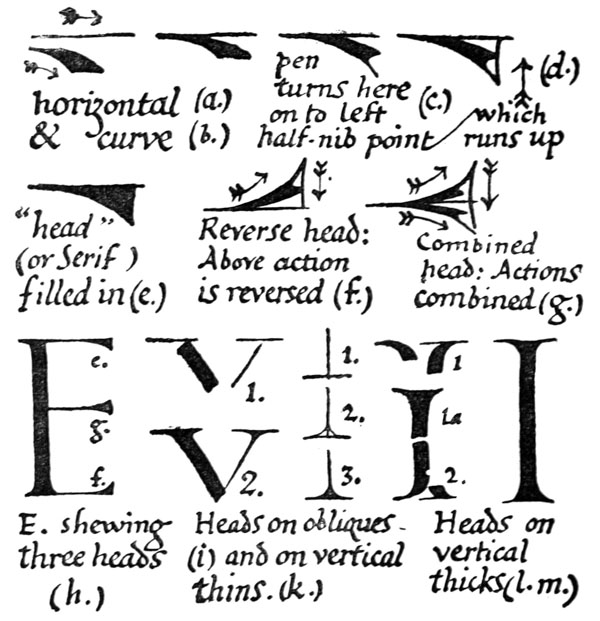 horizontal (a.)
& curve (b.)
pen
turns here
on to left (c.)
half-nib point
(d.)
which
runs up
"head"
(or Serif)
filled in (e.)
Reverse head:
Above action
is reversed (f.)
Combined
head: Actions
combined (g.)
E e. g. f.
V 1.
V 2.
1.
2.
3.
1
1a
2.
I
E. shewing
three heads
(h.)
Heads on obliques
(i) and on vertical
thins. (k.)
Heads on
vertical
thicks (l. m.)